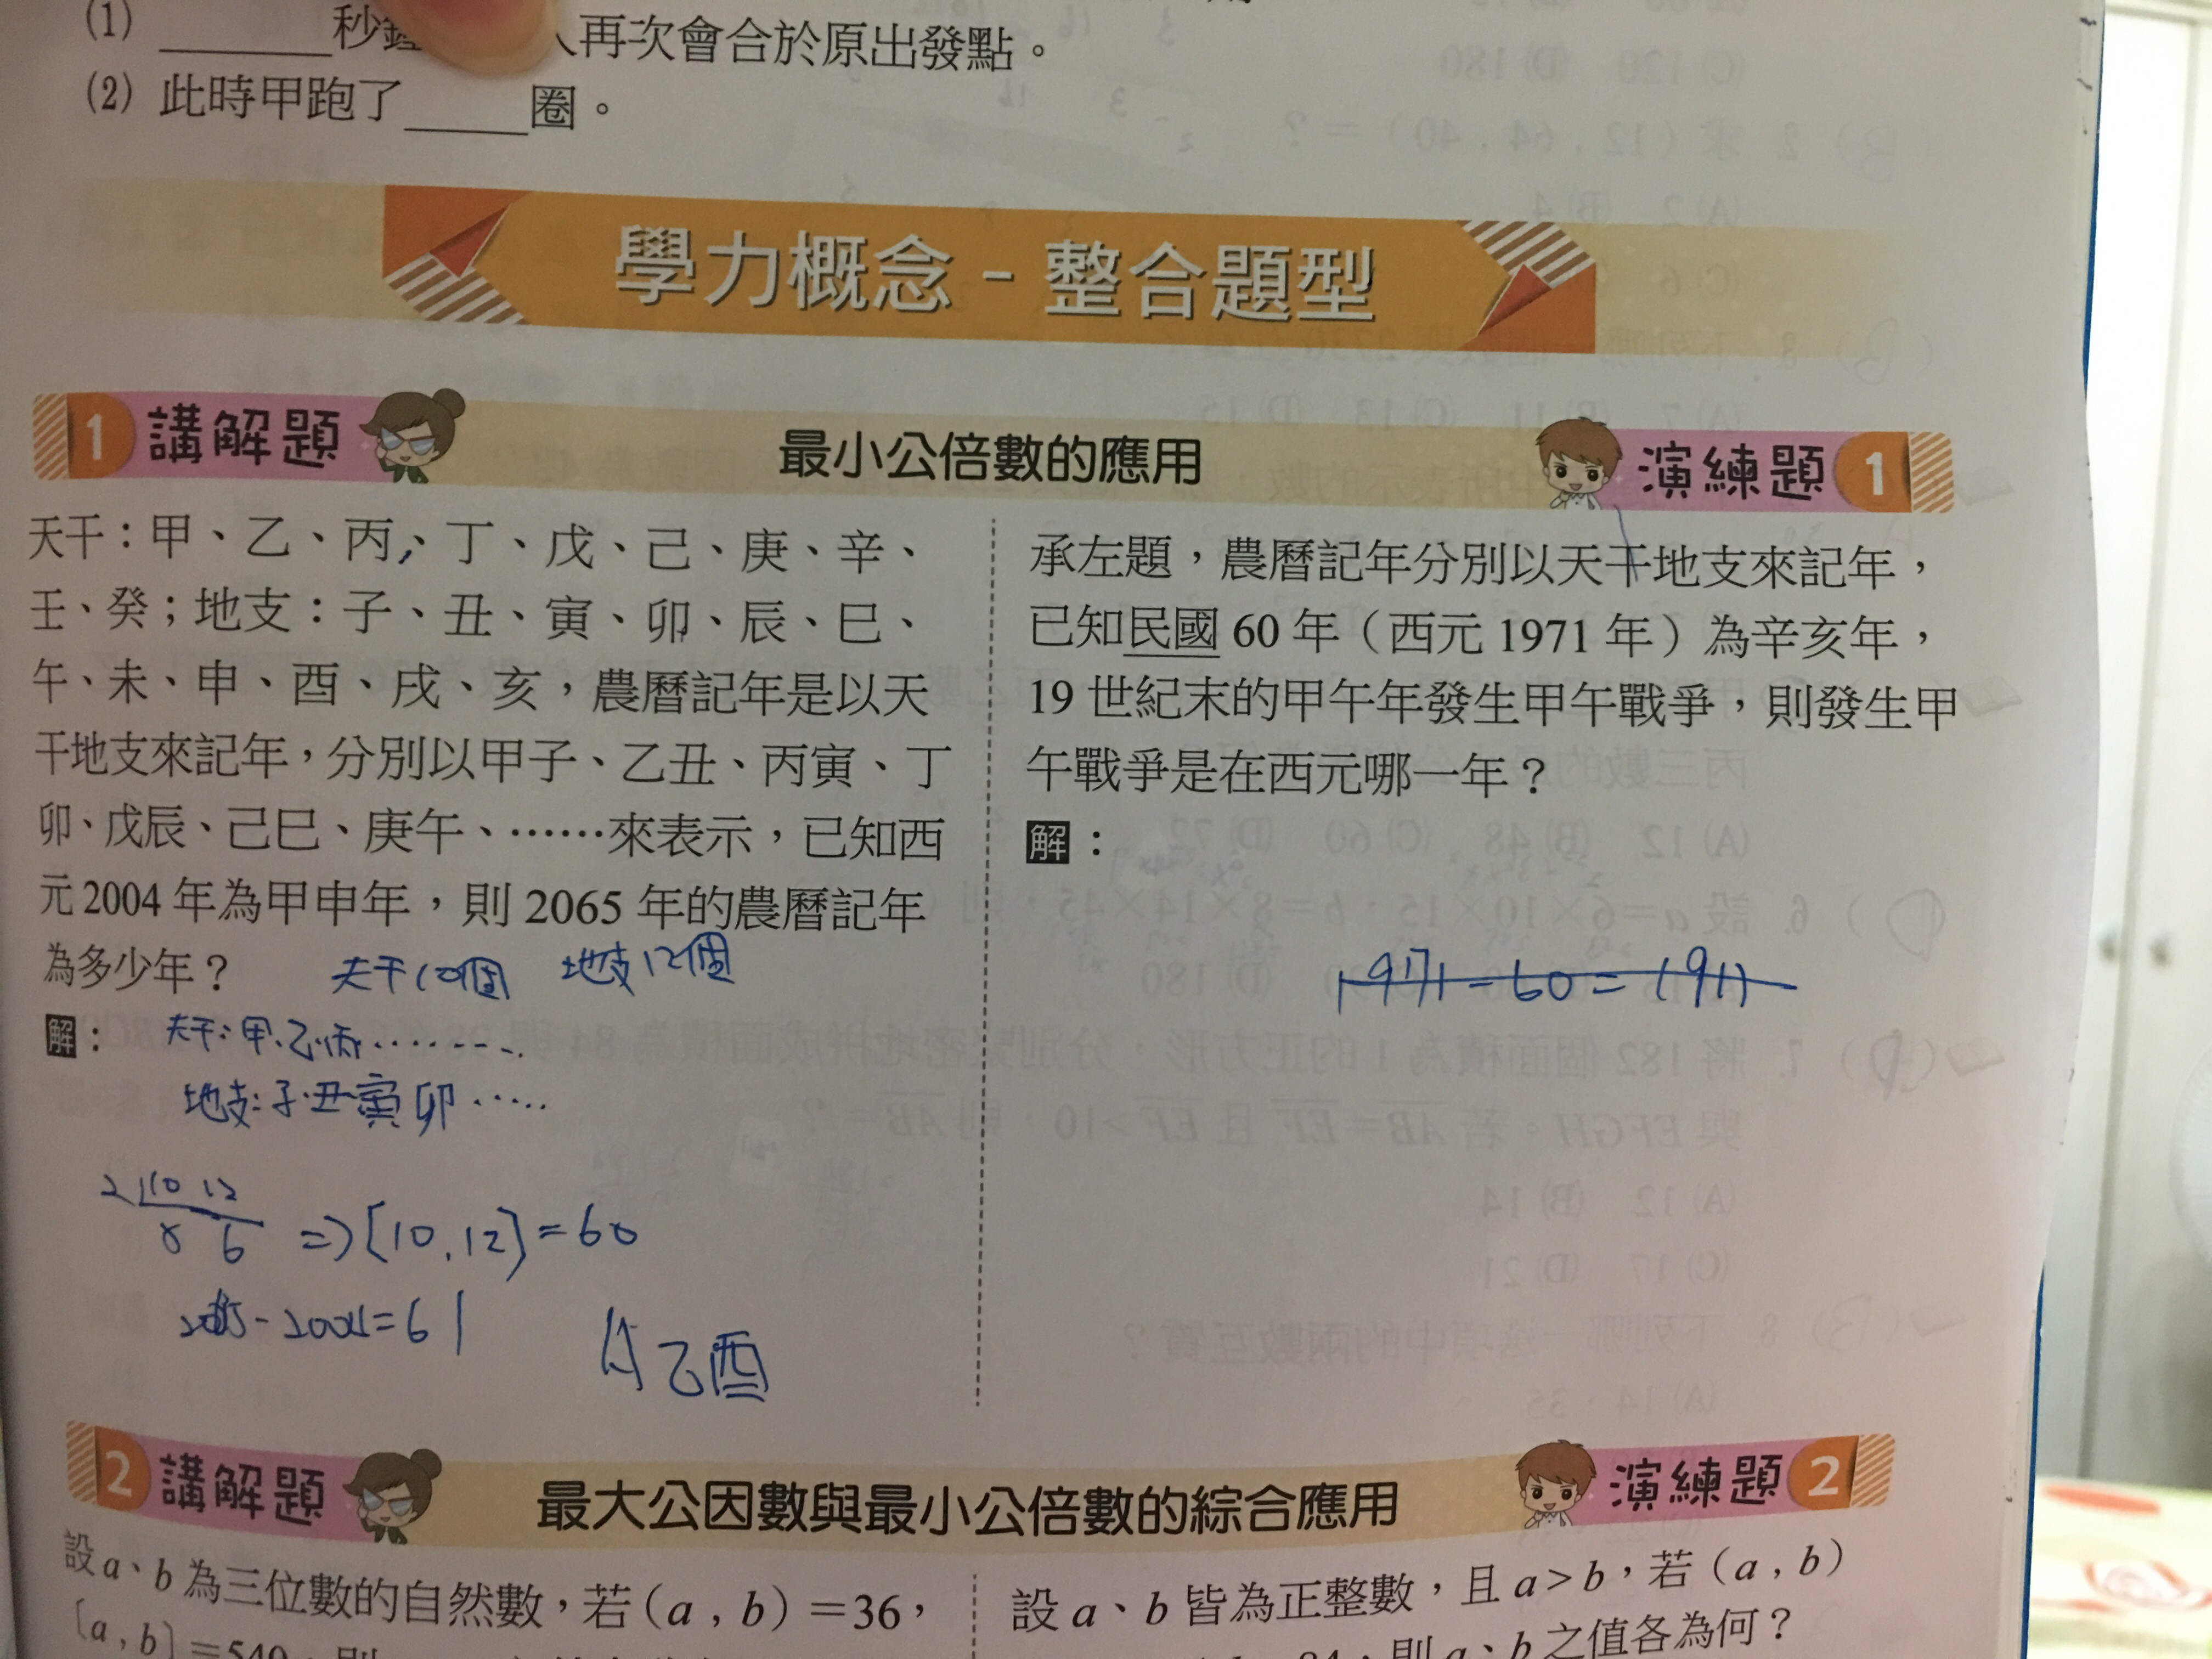 (1) 秒 再次會合於原出發點。
(2) 此時甲跑了_____圈。
學力概念-整合題型
1 講解題 最小公倍數的應用 演練題 1
天干：甲、乙、丙、丁、戊、己、庚、辛、
壬、癸；地支：子、丑、寅、卯、辰、巳、
午、未、申、酉、戌、亥，農曆記年是以天
干地支來記年，分別以甲子、乙丑、丙寅、丁
卯、戊辰、己巳、庚午、……來表示，已知西
元 2004 年為甲申年，則 2065 年的農曆記年
為多少年？ 天干10個 地支12個
解： 天干：甲.乙.丙.......
地支：子.丑寅卯.....
2 10 12
5 6 => [10,12]=60
2065-2004=61
A 乙酉
承左題，農曆記年分別以天干地支來記年，
已知民國 60 年（西元 1971 年）為辛亥年，
19 世紀末的甲午年發生甲午戰爭，則發生甲
午戰爭是在西元哪一年？
解：
1971-60=1911
2 講解題 最大公因數與最小公倍數的綜合應用 演練題 2
設 a、b 為三位數的自然數，若(a , b)＝36，
[a , b]＝540，則
設 a、b 皆為正整數，且 a>b，若(a , b)
84，則 a、b 之值各為何？